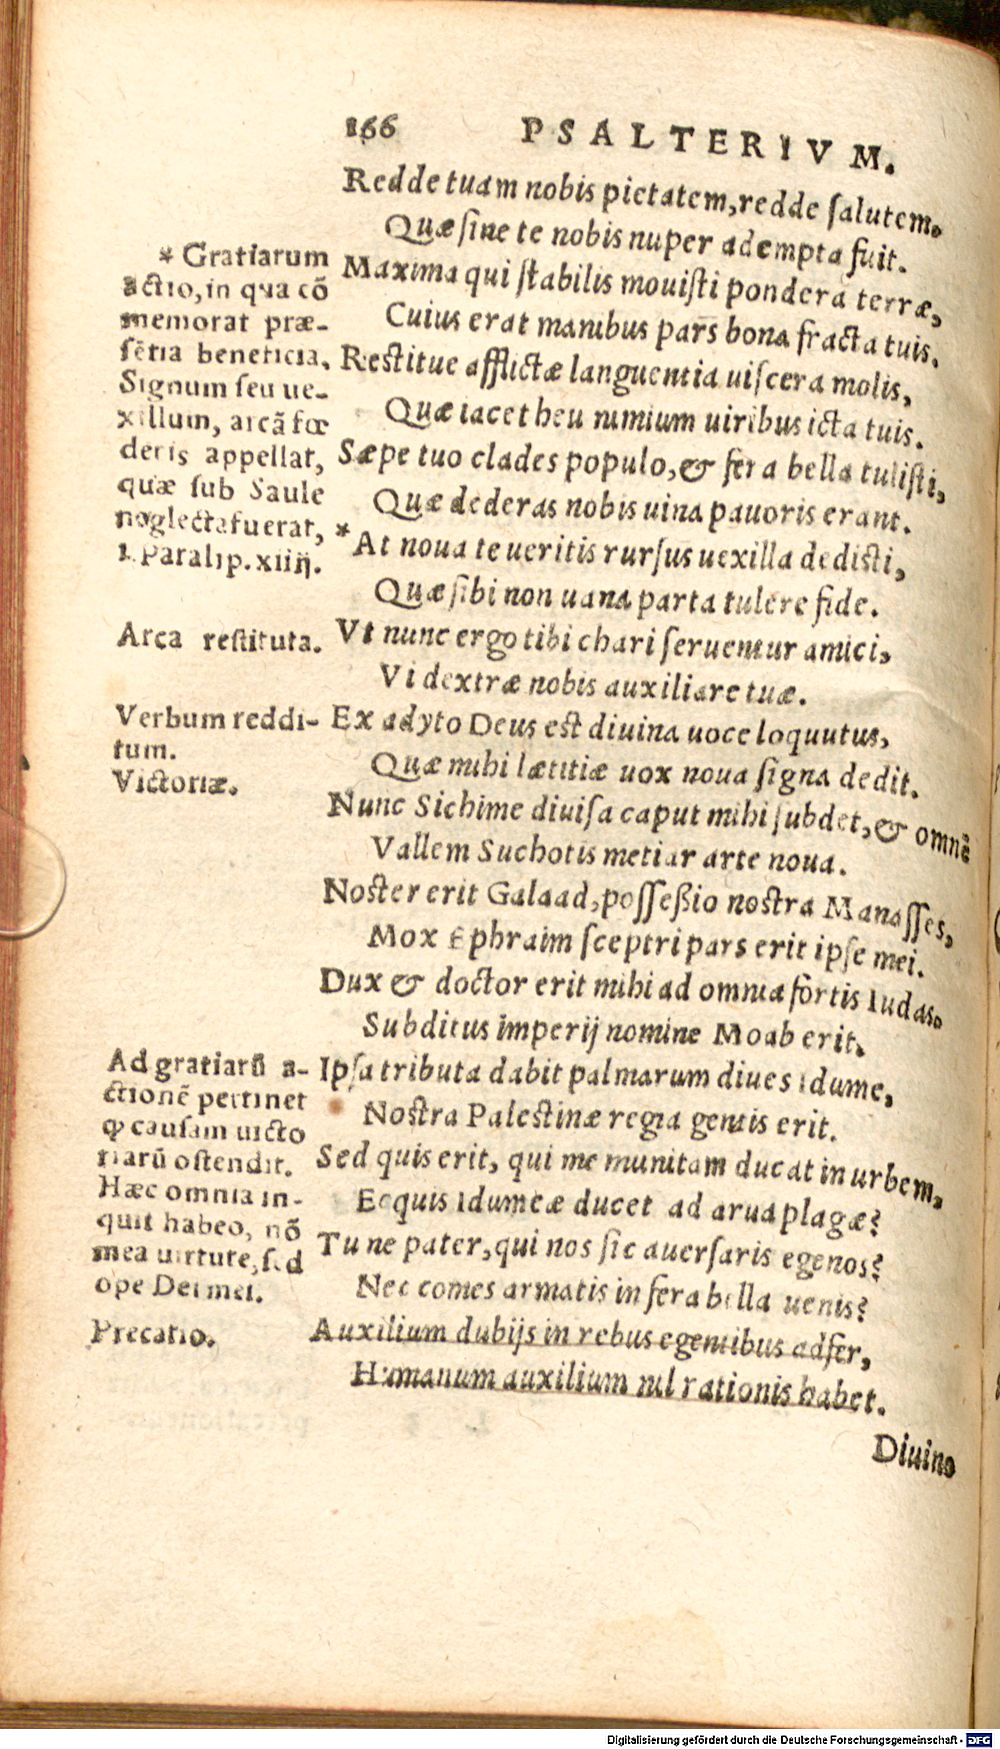 166 PSALTERIVM.
Redde tuam nobis pietatem, redde ſalutem.
Quæ ſine te nobis nuper adempta fuit.
Maxima qui ſtabilis mouiſti pondera terræ,
Cuius erat manibus pars bona fracta tuis.
Restitue afflictæ languentia uiſcera molis,
Quæ iacet heu nimium uiribus icta tuis.
Sæpe tuo clades populo, & fera bella tuliſti,
Quæ dederas nobis uina pauoris erant.
*At noua te ueritis rurſus uexilla dediſti,
Quæ ſibi non uana parta tulere fide.
Vt nunc ergo tibi chari ſeruentur amici,
Vi dextræ nobis auxiliare tuæ.
Ex adyto Deus est diuina uoce loquutus,
Quæ mihi lætitiæ uox noua ſigna dedit.
Nunc Sichime diuiſa caput mihi ſubdet, & omnē
Vallem Suchotis metiar arte noua.
Noster erit Galaad, poſſeßio nostra Manaſſes,
Mox Ephraim ſceptri pars erit ipſe mei.
Dux & doctor erit mihi ad omnia fortis Iudas.
Subditus imperij nomine Moab erit.
Ipſa tributa dabit palmarum diues Idume,
Nostra Palestinæ regia gentis erit.
Sed quis erit, qui me munitam ducat in urbem,
Ecquis Idumeæ ducet ad arua plagæ?
Tu ne pater, qui nos ſic auerſaris egenos?
Nec comes armatis in fera bella uenis?
Auxilium dubijs in rebus egentibus adfer,
Humanum auxilium nil rationis habet.
Diuino
* Gratiarum
actio, in qua cō
memorat præ-
ſētia beneficia.
Signum ſeu ue-
xillum, arcā fœ
deris appellat,
quæ ſub Saule
neglecta fuerat,
1. Paralip. xiiij.
Arca reſtituta.
Verbum reddi-
tum.
Victoriæ.
Ad gratiarū a-
ctionē pertinet
ꝙ cauſam uicto
riarū oſtendit.
Hæc omnia in-
quit habeo, nō
mea uirtute, ſed
ope Dei mei.
Precatio.
Digitalisierung gefördert durch die Deutsche Forschungsgemeinschaft - DFG